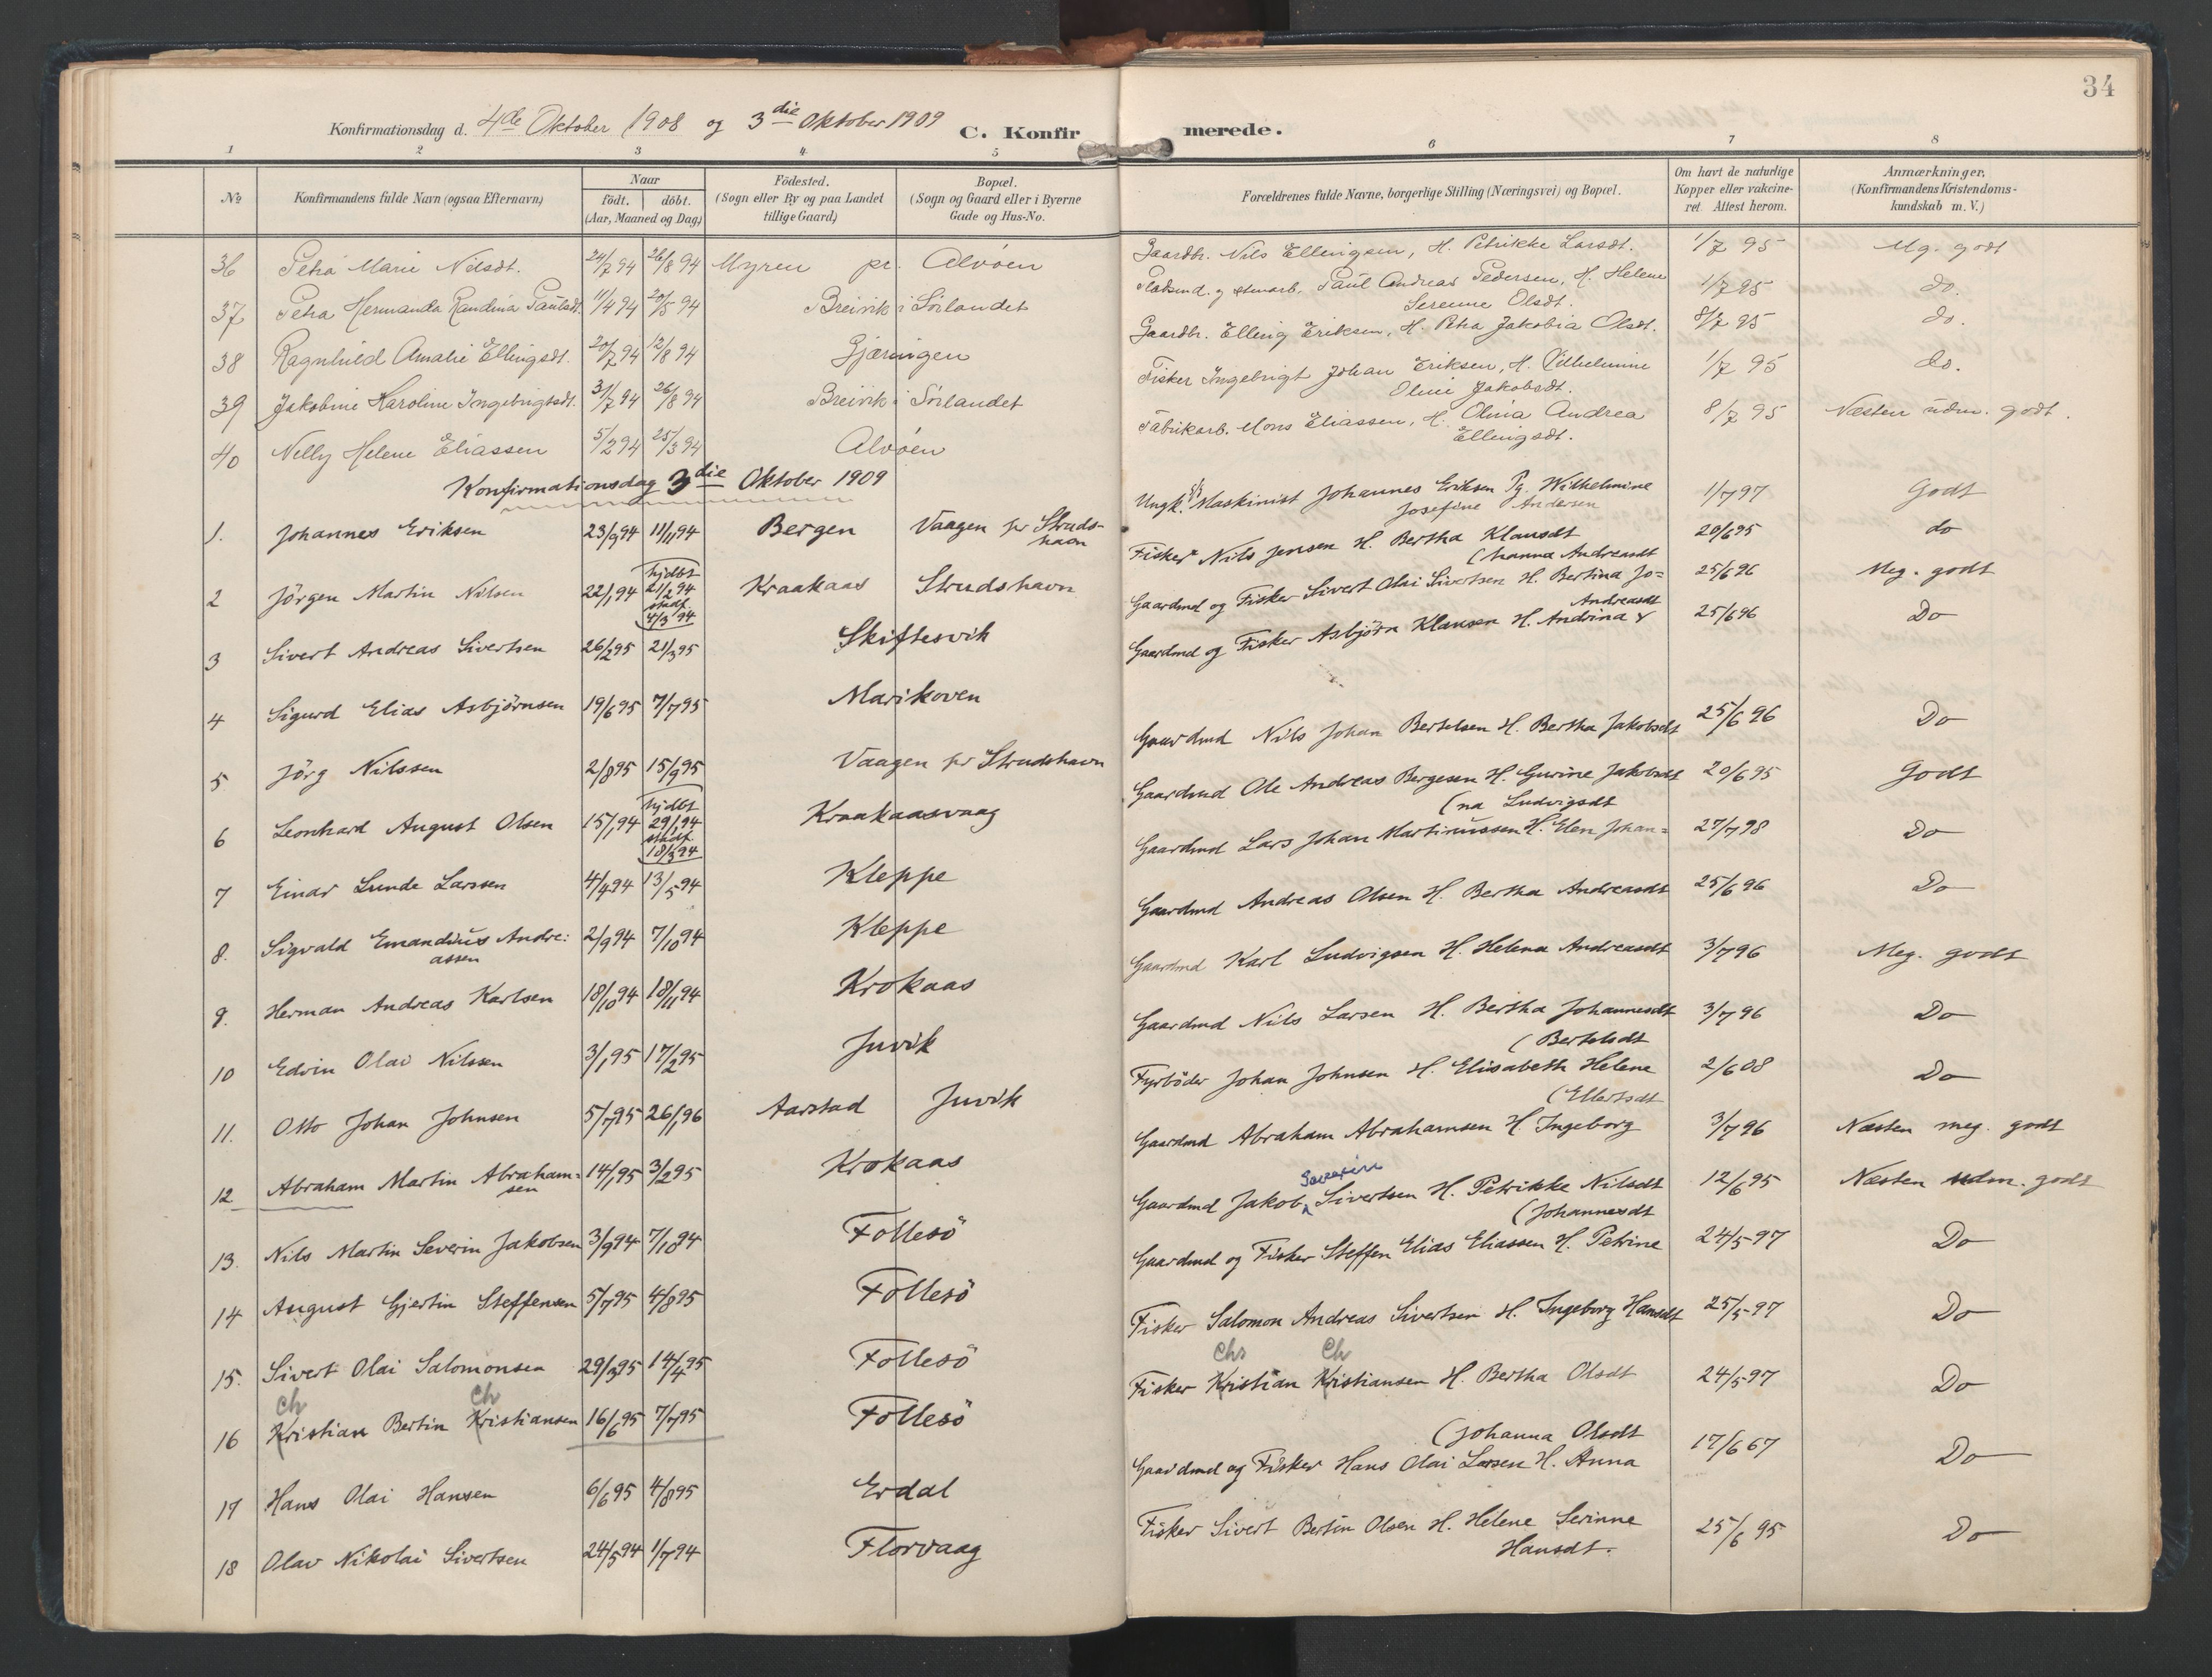 34
Konfirmationsdag d. 4de Oktober 1908 og 3die Oktober 1909 C. Konfirmerede.
1 2 3 4 5 6 7 8
No Konfirmandens fulde Navn (ogsaa Efternavn) Naar født. døbt. (Aar, Maaned og Dag) Födested. (Sogn eller By og paa Landet tillige Gaard) Bopæl. (Sogn og Gaard eller i Byerne Gade og Hus-No. Forældrenes fulde Navne, borgerlige Stilling (Næringsvei) og Bopæl. Om havt de naturlige Kopper eller vakcineret. Attest herom. Anmærkninger, (Konfirmandens Kristendomskundskab m. V.)
36 Petra Marie Nilsdt. 24/7 94 26/8 94 Myren pr. Alvøen Gaardbr. Nils Ellingsen, H. Petrikke Larsdt. 1/7 95 Mg. godt
37 Petra Hermanda Randina Paulsdt. 11/4 94 20/5 94 Breivik i Sörlandet Pladsmd. og stenarb. Paul Andreas Pedersen, H. Helene Serenne Olsdt. 1/7 95 do.
38 Ragnhild Amalie Ellingsdt. 20/7 94 12/8 94 Gjæringen Gaardbr. Elling Eriksen, H. Petra Jakobia Olsdt. 8/7 95 do.
39 Jakobine Karoline Ingebrigtsdt. 31/7 94 26/8 94 Breivik i Sörlandet Fisker Ingebrigt Johan Eriksen, H. Vilhelmine Oline Jakobsdt. 1/7 95 do.
40 Nelly Helene Eliassen 5/2 94 25/3 94 Alvöen Fabrikarb. Mons Eliassen, H. Olina Andrea Ellingsdt. 8/7 95 Næsten udm. godt.
Konfirmationsdag 3die Oktober 1909
1. Johannes Eriksen 23/9 94 11/11 94 Bergen Vaagen pr Strudshavn Ungk. Maskinist Johannes Eriksen Pg. Wilhelmine Josefine Andersen 1/7 97 Godt
2 Jörgen Martin Nilsen 22/1 94 hjdbt 21/2 94 stadf. 4/3 94 Kraakaas Strudshavn Fisker Nils Jensen H. Bertha Klausdt 20/6 95 do
3 Sivert Andreas Sivertsen 26/2 95 21/3 95 Skiftesvik Gaardmd og Fisker Sivert Olai Sivertsen H. Bertina Jo= (hanna Andreasdt 25/6 96 Meg. godt
4 Sigurd Elias Asbjörnsen 19/6 95 7/7 95 Marikoven Gaardmd og Fisker Asbjörn Klausen H. Andrina Andreasdt 25/6 96 Do
5 Jörg Nilssen 2/8 95 15/9 95 Vaagen pr Strudshavn Gaardmd Nils Johan Bertelsen H. Bertha Jakobsdt 25/6 96 Do
6 Leonhard August Olsen 15/1 94 hjdbt 29/1 94 stadf. 18/3 94 Kraakaasvaag Gaardmd Ole Andreas Bergesen H. Gurine Jakobsdt 20/6 95 Godt
7 Einar Lunde Larssen 4/4 94 13/5 94 Kleppe Gaardmd Lars Johan Martinussen H. Elen Johan= (na Ludvigsdt 27/7 98 Do
8. Sigvald Emandius Andre: assen 2/9 94 7/10 94 Kleppe Gaardmd Andreas Olsen H. Bertha Andreasdt 25/6 96 Do
9. Herman Andreas Karlsen 18/10 94 18/11 94 Krokaas Gaardmd Karl Ludvigsen H. Helena Andreasdt 3/7 96 Meg. godt
10 Edvin Olai Nilssen 3/1 95 17/2 95 Juvik Gaardmd Nils Larsen H. Bertha Johannesdt 3/7 96 Do
11. Otto Johan Johnsen 5/7 95 26/1 96 Aarstad Juvik Fyrböder Johan Johnsen H. Elisabeth Helene (Bertelsdt 2/6 08 Do
12 Abraham Martin Abraham= sen 14/1 95 3/2 95 Krokaas Gaardmd Abraham Abrahamsen H. Ingeborg (Ellertsdt 3/7 96 Næsten meg. godt
13. Nils Martin Severin Jakobsen 3/9 94 7/10 94 Follesö Gaardmd Jakob Severin Sivertsen H. Petrikke Nilsdt 12/6 95 Næsten udm. godt
14 August Gjertin Steffensen 5/7 95 4/8 95 Follesö Gaardmd og Fisker Steffen Elias Eliassen H. Petrine (Johannesdt 24/5-97 Do
15. Sivert Olai Salomonsen 29/3 95 14/4 95 Follesö Fisker Salomon Andreas Sivertsen H. Ingeborg Hansdt 25/5-97 Do
Ch Ch Chr Ch
16 Kristian Bertin Kristiansen 16/6 95 7/7 95 Follesö Fisker Kristian Kristiansen H. Bertha Olsdt 24/5-97 Do
17 Hans Olai Hansen 6/6 95 4/8 95 Erdal Gaardmd og Fisker Hans Olai Larsen H. Anna (Johanna Olsdt 17/6 67 Do
18 Olav Nikolai Sivertsen 24/5 94 1/7 94 Florvaag Fisker Sivert Bertin Olsen H. Helene Serinne Hansdt. 25/6 95 Do